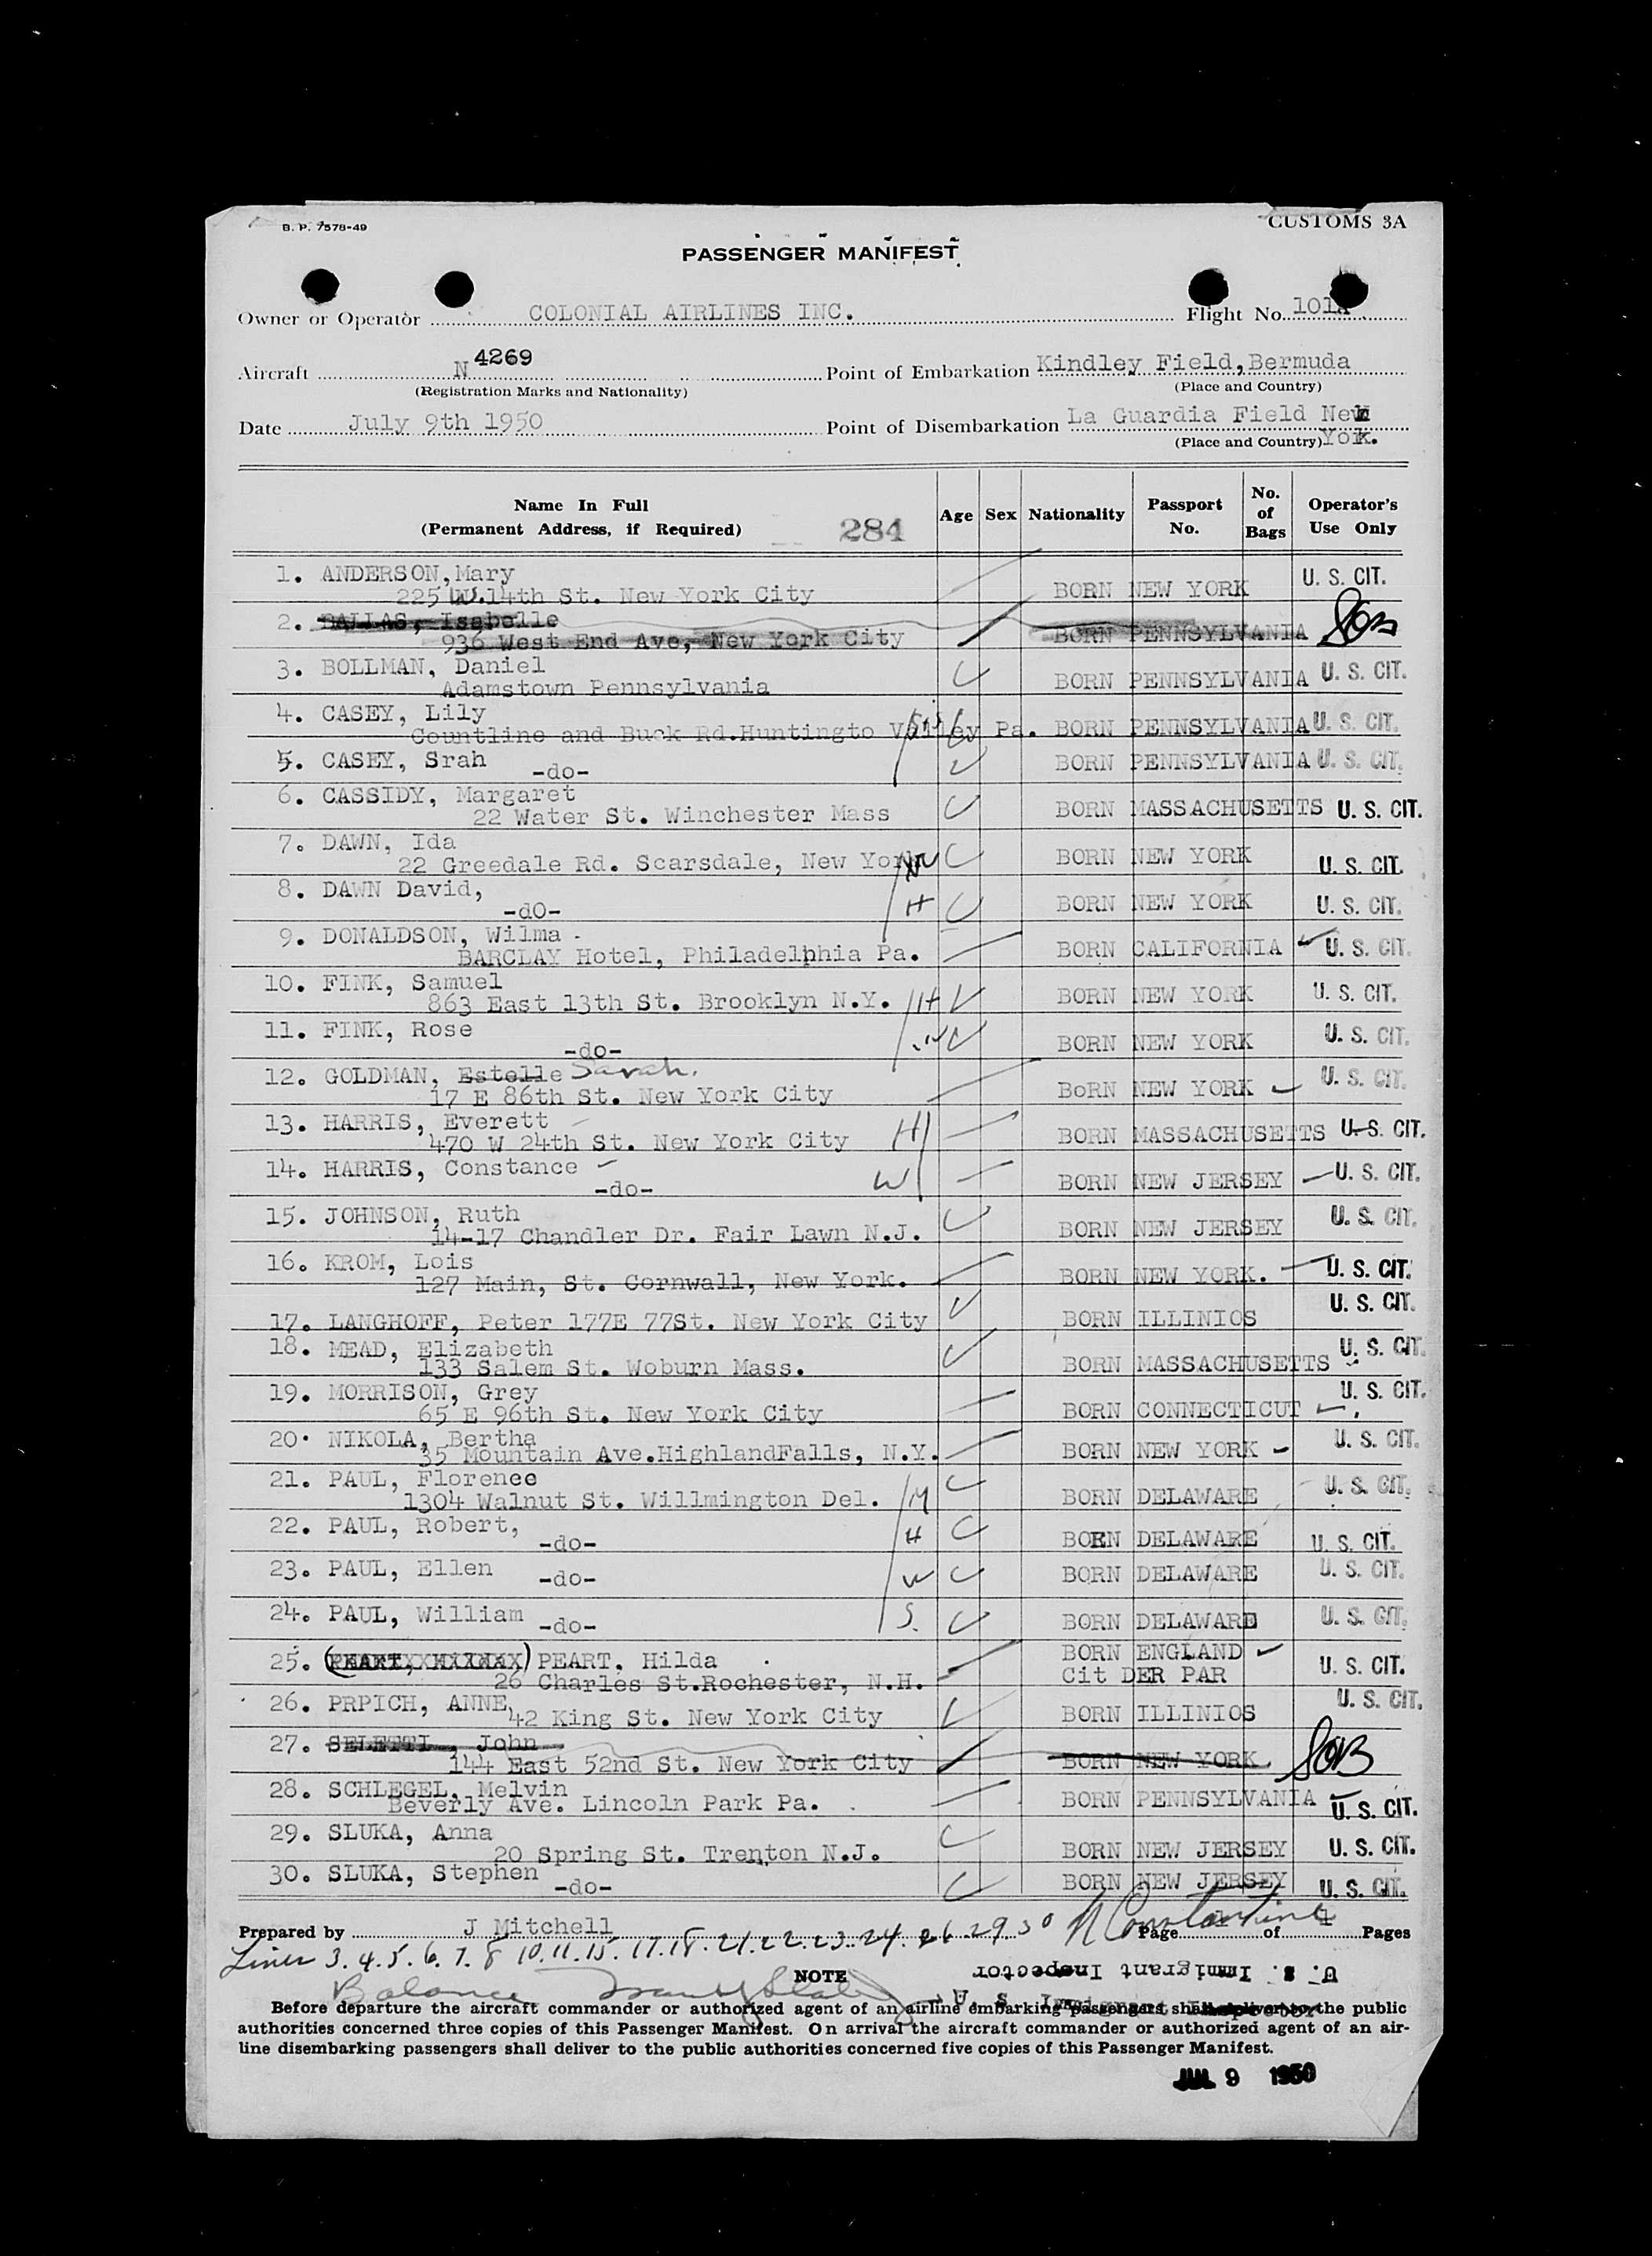 B. P. 7578-49
CUSTOMS 3A
PASSENGER MANIFEST
Owner or Operator COLONIAL AIRLINES INC. Flight No. 101A
Aircraft N 4269 Point of Embarkation Kindley Field, Bermuda
(Registration Marks and Nationality) (Place and Country)
Date July 9th 1950 Point of Disembarkation La Guardia Field New
(Place and Country) York.
Name In Full
(Permanent Address, if Required) 284 Age Sex Nationality Passport No. No. of Bags Operator's Use Only
1. ANDERSON,Mary U. S. CIT.
225 W.14th St. New York City BORN NEW YORK
2. DALLAS, Isabelle
936 West End Ave, New York City BORN PENNSYLVANIA SOB
3. BOLLMAN, Daniel
Adamstown Pennsylvania BORN PENNSYLVANIA U. S. CIT.
4. CASEY, Lily
Countline and Buck Rd.Huntingto Valley Pa. BORN PENNSYLVANIA U. S. CIT.
5. CASEY, Srah -do- BORN PENNSYLVANIA U. S. CIT.
6. CASSIDY, Margaret
22 Water St. Winchester Mass BORN MASSACHUSETTS U. S. CIT.
7. DAWN, Ida
22 Greedale Rd. Scarsdale, New York W BORN NEW YORK U. S. CIT.
8. DAWN David,
-dO- H BORN NEW YORK U. S. CIT.
9. DONALDSON, Wilma
BARCLAY Hotel, Philadelphia Pa. BORN CALIFORNIA U. S. CIT.
10. FINK, Samuel
863 East 13th St. Brooklyn N.Y. H BORN NEW YORK U. S. CIT.
11. FINK, Rose
-do- W BORN NEW YORK U. S. CIT.
12. GOLDMAN, Estelle Sarah.
17 E 86th St. New York City BoRN NEW YORK U. S. CIT.
13. HARRIS, Everett
470 W 24th St. New York City H BORN MASSACHUSETTS U. S. CIT.
14. HARRIS, Constance
-do- W BORN NEW JERSEY U. S. CIT.
15. JOHNSON, Ruth
14-17 Chandler Dr. Fair Lawn N.J. BORN NEW JERSEY U. S. CIT.
16. KROM, Lois
127 Main, St. Cornwall, New York. BORN NEW YORK. U. S. CIT.
17. LANGHOFF, Peter 177E 77St. New York City BORN ILLINIOS U. S. CIT.
18. MEAD, Elizabeth
133 Salem St. Woburn Mass. BORN MASSACHUSETTS U. S. CIT.
19. MORRISON, Grey
65 E 96th St. New York City BORN CONNECTICUT U. S. CIT.
20. NIKOLA, Bertha
35 Mountain Ave.HighlandFalls, N.Y. BORN NEW YORK U. S. CIT.
21. PAUL, Florenee
1304 Walnut St. Willmington Del. M BORN DELAWARE U. S. CIT.
22. PAUL, Robert,
-do- H BORN DELAWARE U. S. CIT.
23. PAUL, Ellen -do- W BORN DELAWARE U. S. CIT.
24. PAUL, William -do- S. BORN DELAWARE U. S. CIT.
25. PEART, Hilda BORN ENGLAND
26 Charles St.Rochester, N.H. Cit DER PAR U. S. CIT.
26. PRPICH, ANNE
42 King St. New York City BORN ILLINIOS U. S. CIT.
27. SELETTI, John
144 East 52nd St. New York City BORN NEW YORK SOB
28. SCHLEGEL, Melvin
Beverly Ave. Lincoln Park Pa. BORN PENNSYLVANIA U. S. CIT.
29. SLUKA, Anna
20 Spring St. Trenton N.J. BORN NEW JERSEY U. S. CIT.
30. SLUKA, Stephen
-do- BORN NEW JERSEY U. S. CIT.
Prepared by J Mitchell N Constantine Page of 1 Pages
Lines 3. 4. 5. 6. 7. 8 10. 11. 15. 17. 18. 21. 22. 23. 24. 26 29 30
U. S. Immigrant Inspector
Balance
NOTE
U. S. Immigrant Inspector
Before departure the aircraft commander or authorized agent of an airline embarking passengers shall deliver to the public
authorities concerned three copies of this Passenger Manifest. On arrival the aircraft commander or authorized agent of an air-
line disembarking passengers shall deliver to the public authorities concerned five copies of this Passenger Manifest.
JUL 9 1950